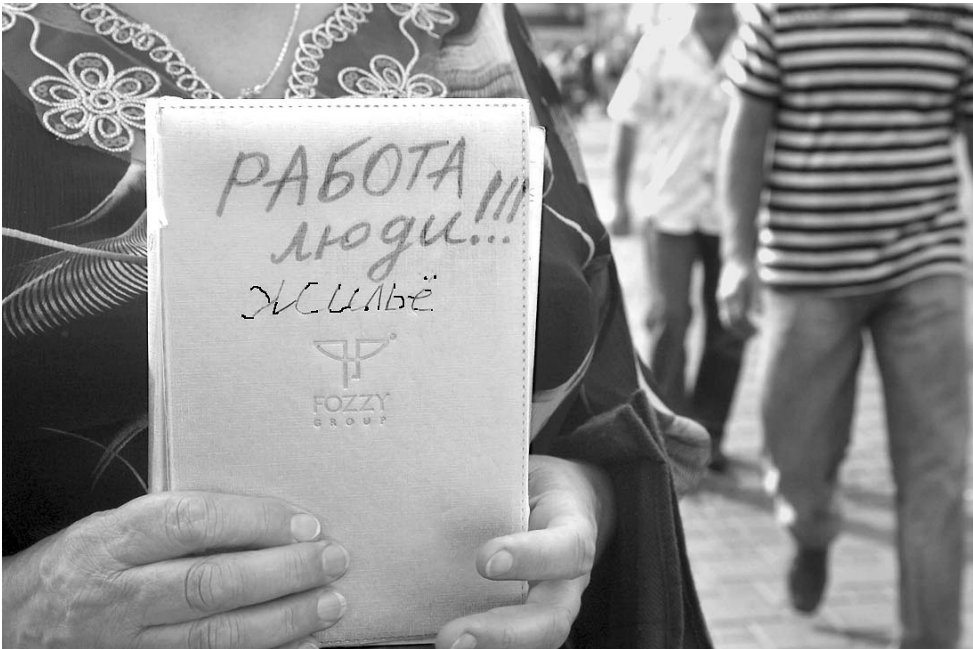 РАБОТА
люди!!!
жильё
FOZZY
GROUP